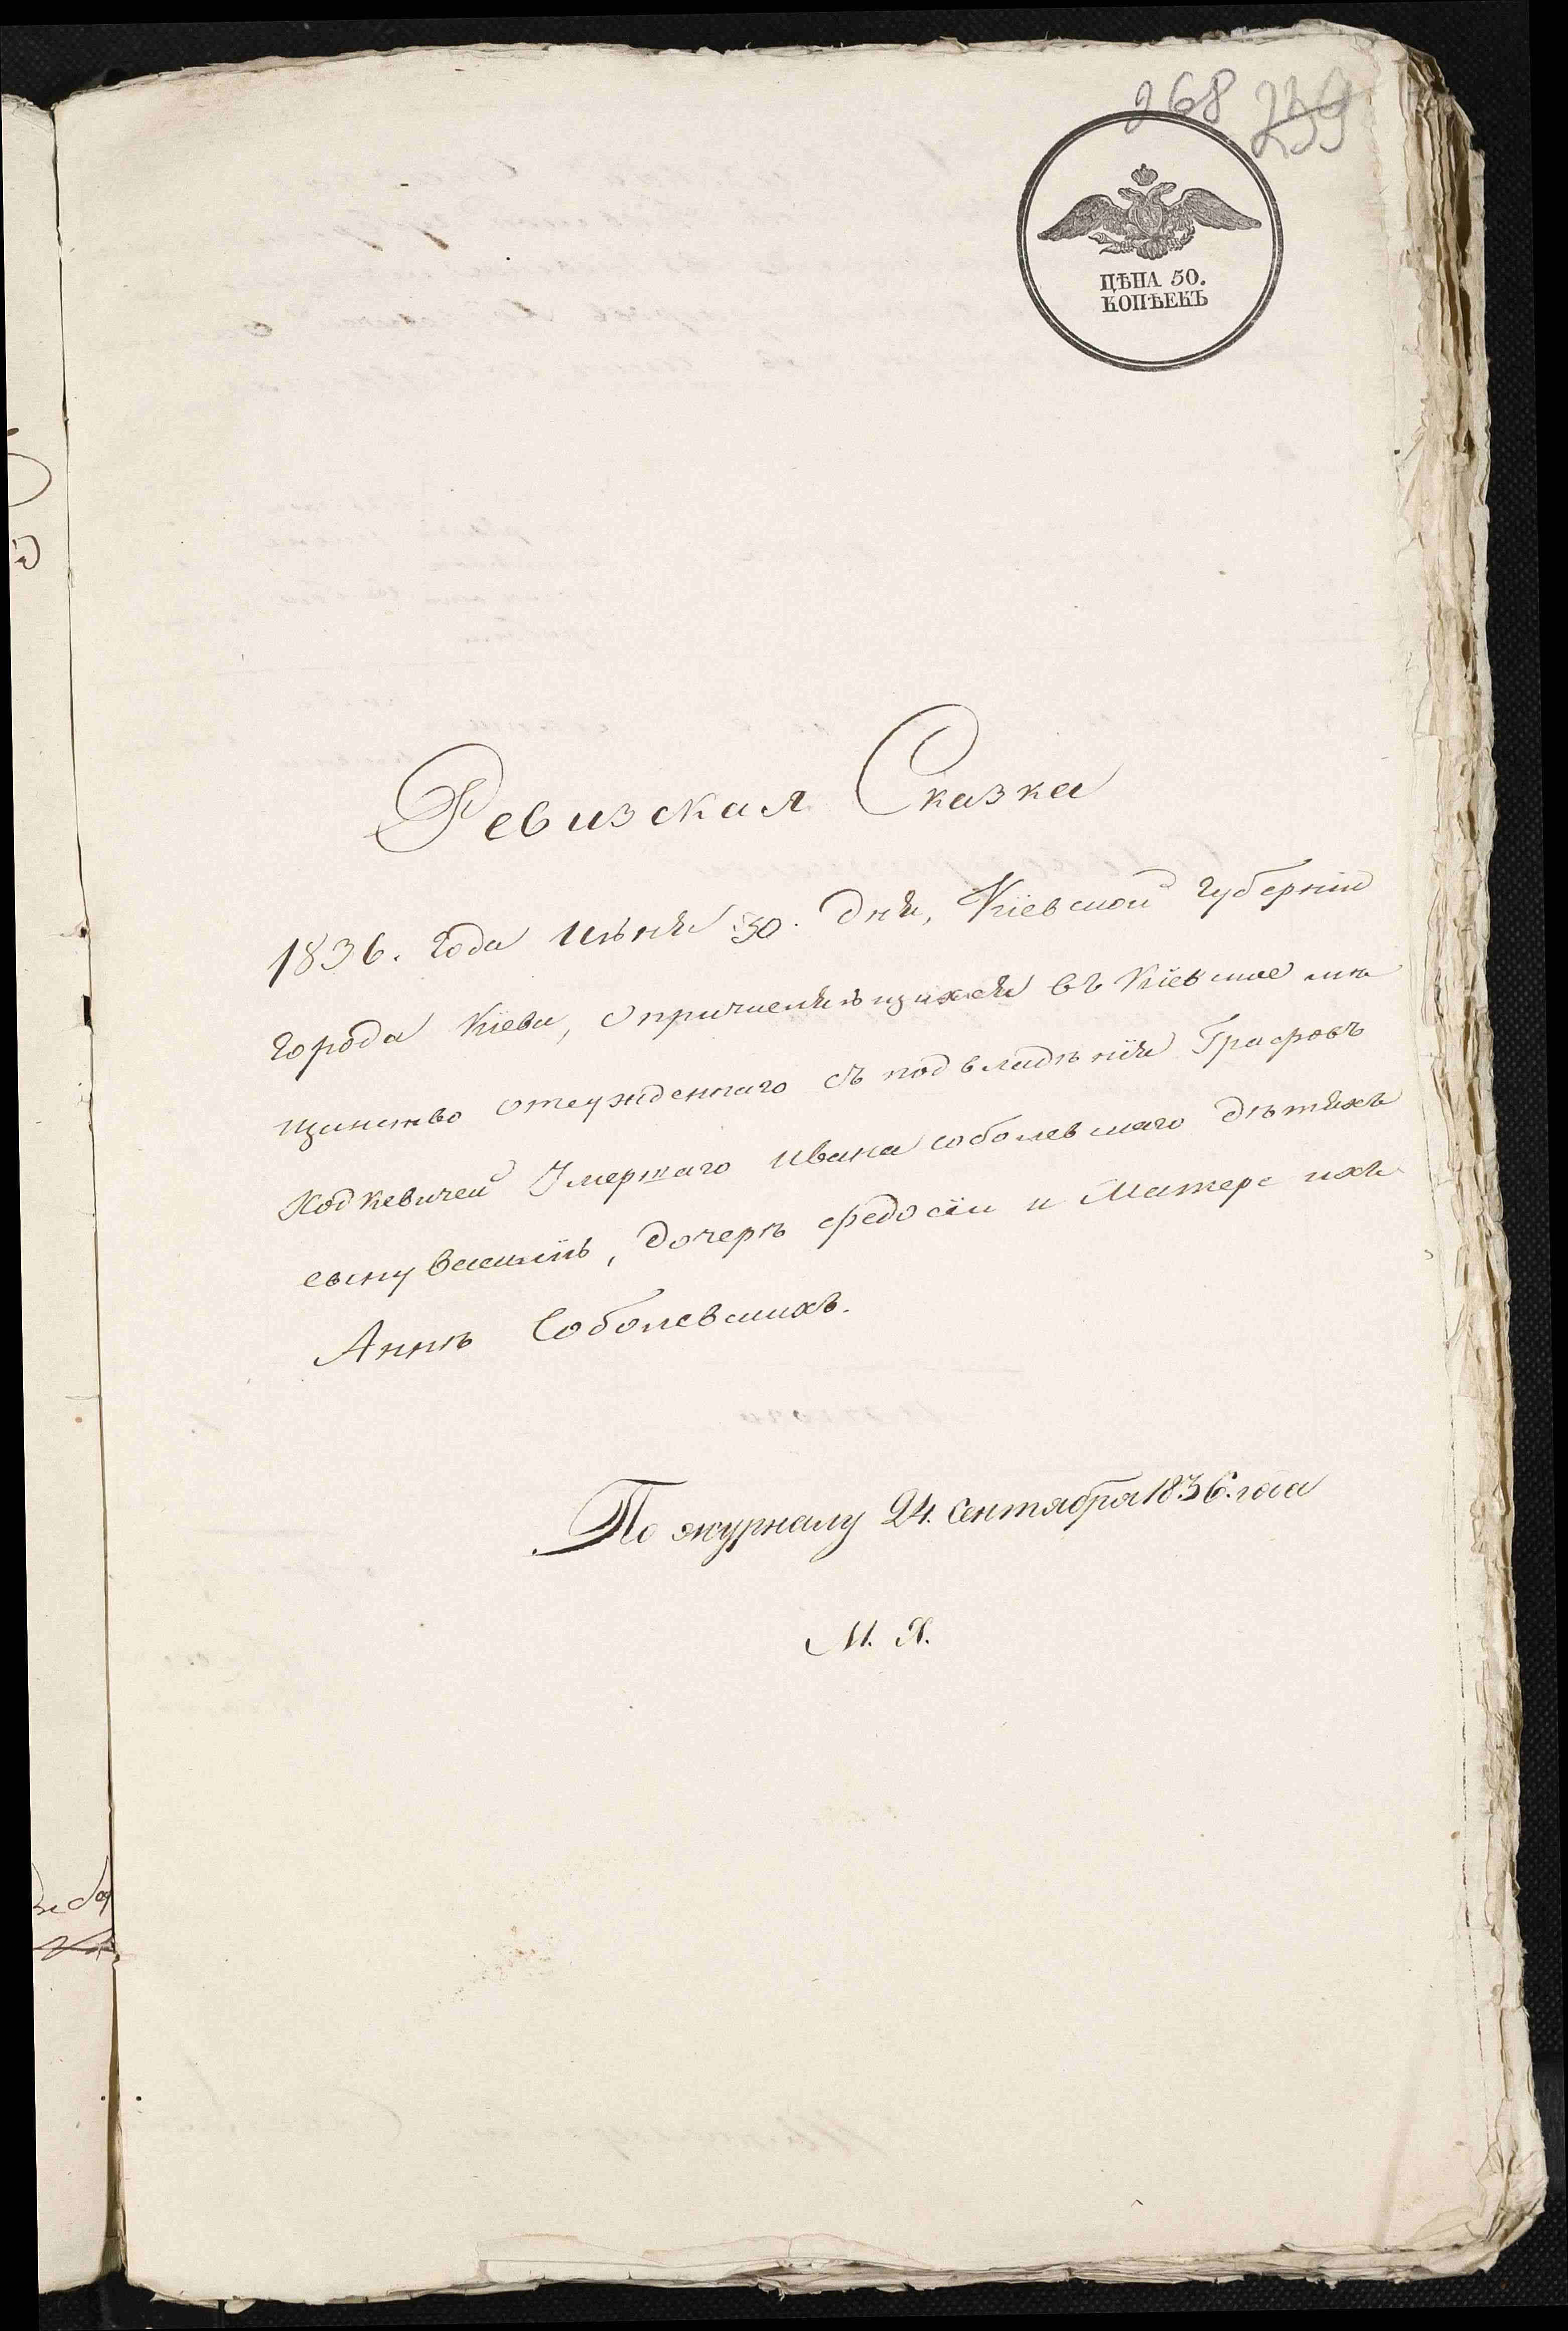 268 239
ЦѢНА 50.
КОПѢЕКЪ
Ревизская Сказка
1836. года Июня 30. дня, Кіевской губерніи
города Кіева, о причисляющихся въ Кіевское мѣ
щанство отсужденнаго съ подвладѣнія Графовъ
Ходкевичей Умершаго Ивана Соболевскаго дѣтяхъ
сыну, дочерѣ Федосіи и Матерѣ ихъ
Аннѣ Соболевскихъ.
По журналу 24. Сентября 1836. года
М. Я.